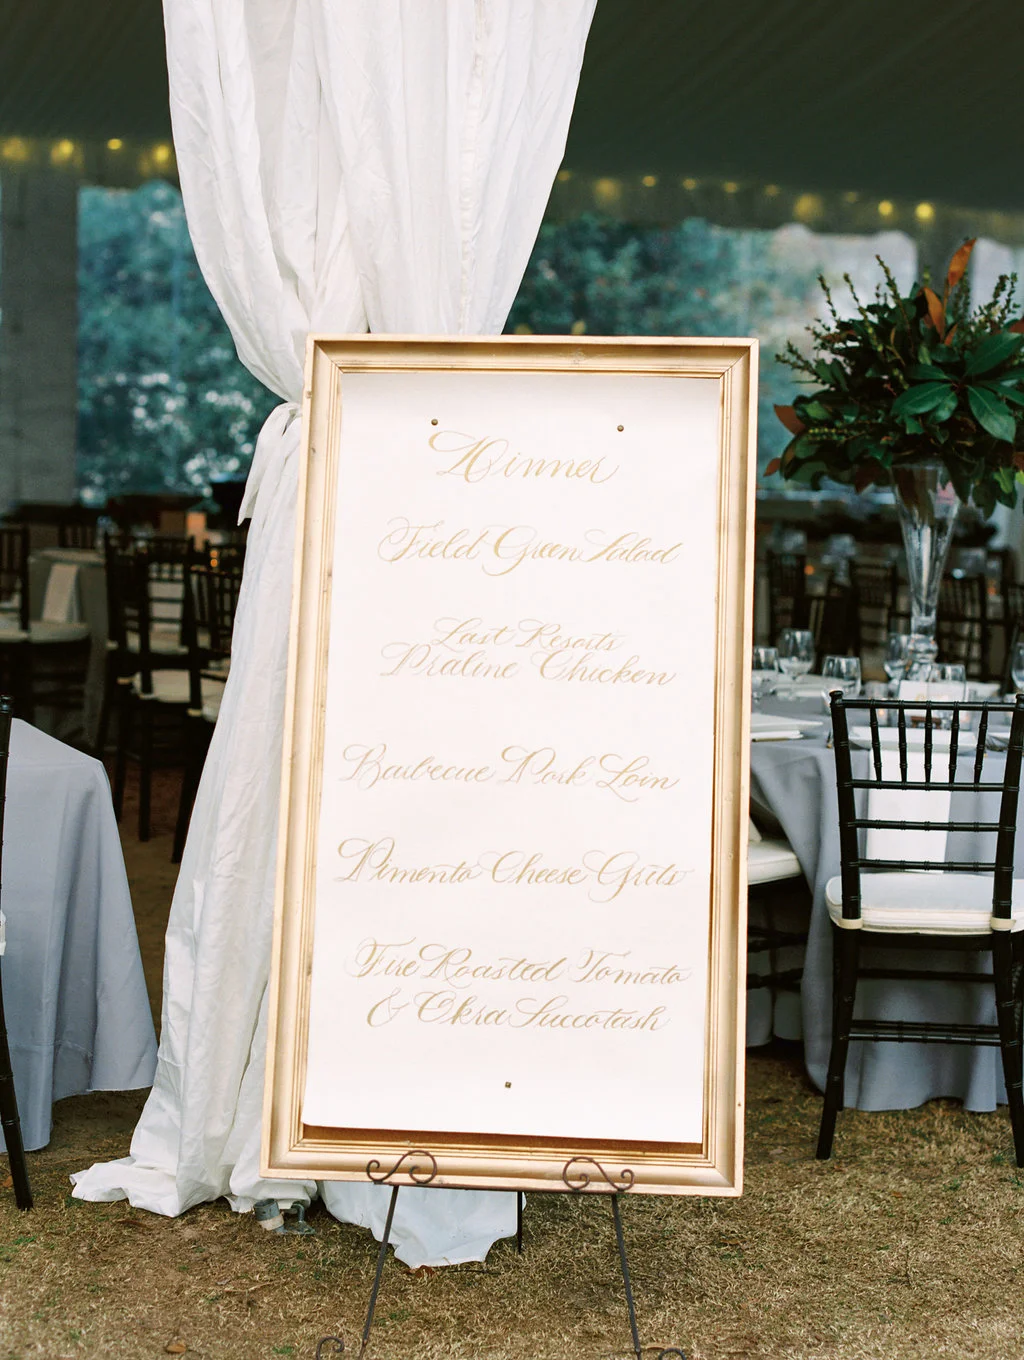 Dinner
Field Green Salad
Last Resorts
Praline Chicken
Barbecue Pork Loin
Pimento Cheese Grits
Fire Roasted Tomato
& Okra Succotash